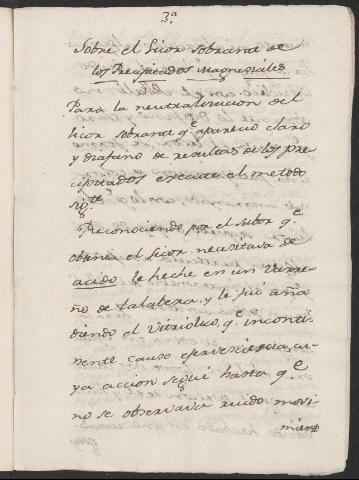 3.ª
Sobre el Licor Sobrante de
los Precipitados Magnesiales
Para la neutralizacion del
licor sobrante q.e aparecio claro
y diafano de resultas de los pre
cipitados execute el metodo
sig.te
Reconociendo por el sabor q.e
el licor necesitava de
acido le heche en un Varre
ño de talabera y le fui aña
diendo el Vitriolico, q.e inconti-
nente causo eferverencia, cu-
ya accion segui hasta q.e
no se observava ruido movi
miento